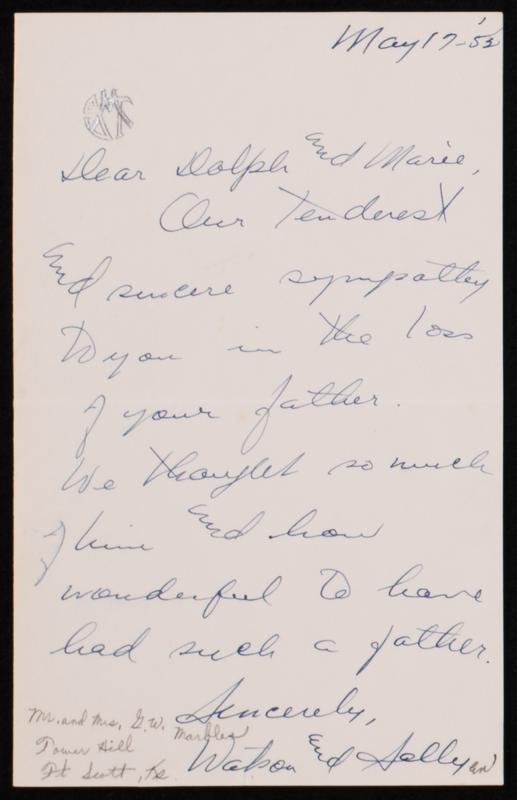 May 17-'52
Dear Dolph and Marie,
Our Tenderest
and sincere sympathy
to you in the loss
of your father.
We thought so much
of him and how
wonderful to have
had such a father.
Sincerely,
Watson and Sallyan
Mr. and Mrs. G.W. Marbles
Tower Hill
Ft Scott, Ks.